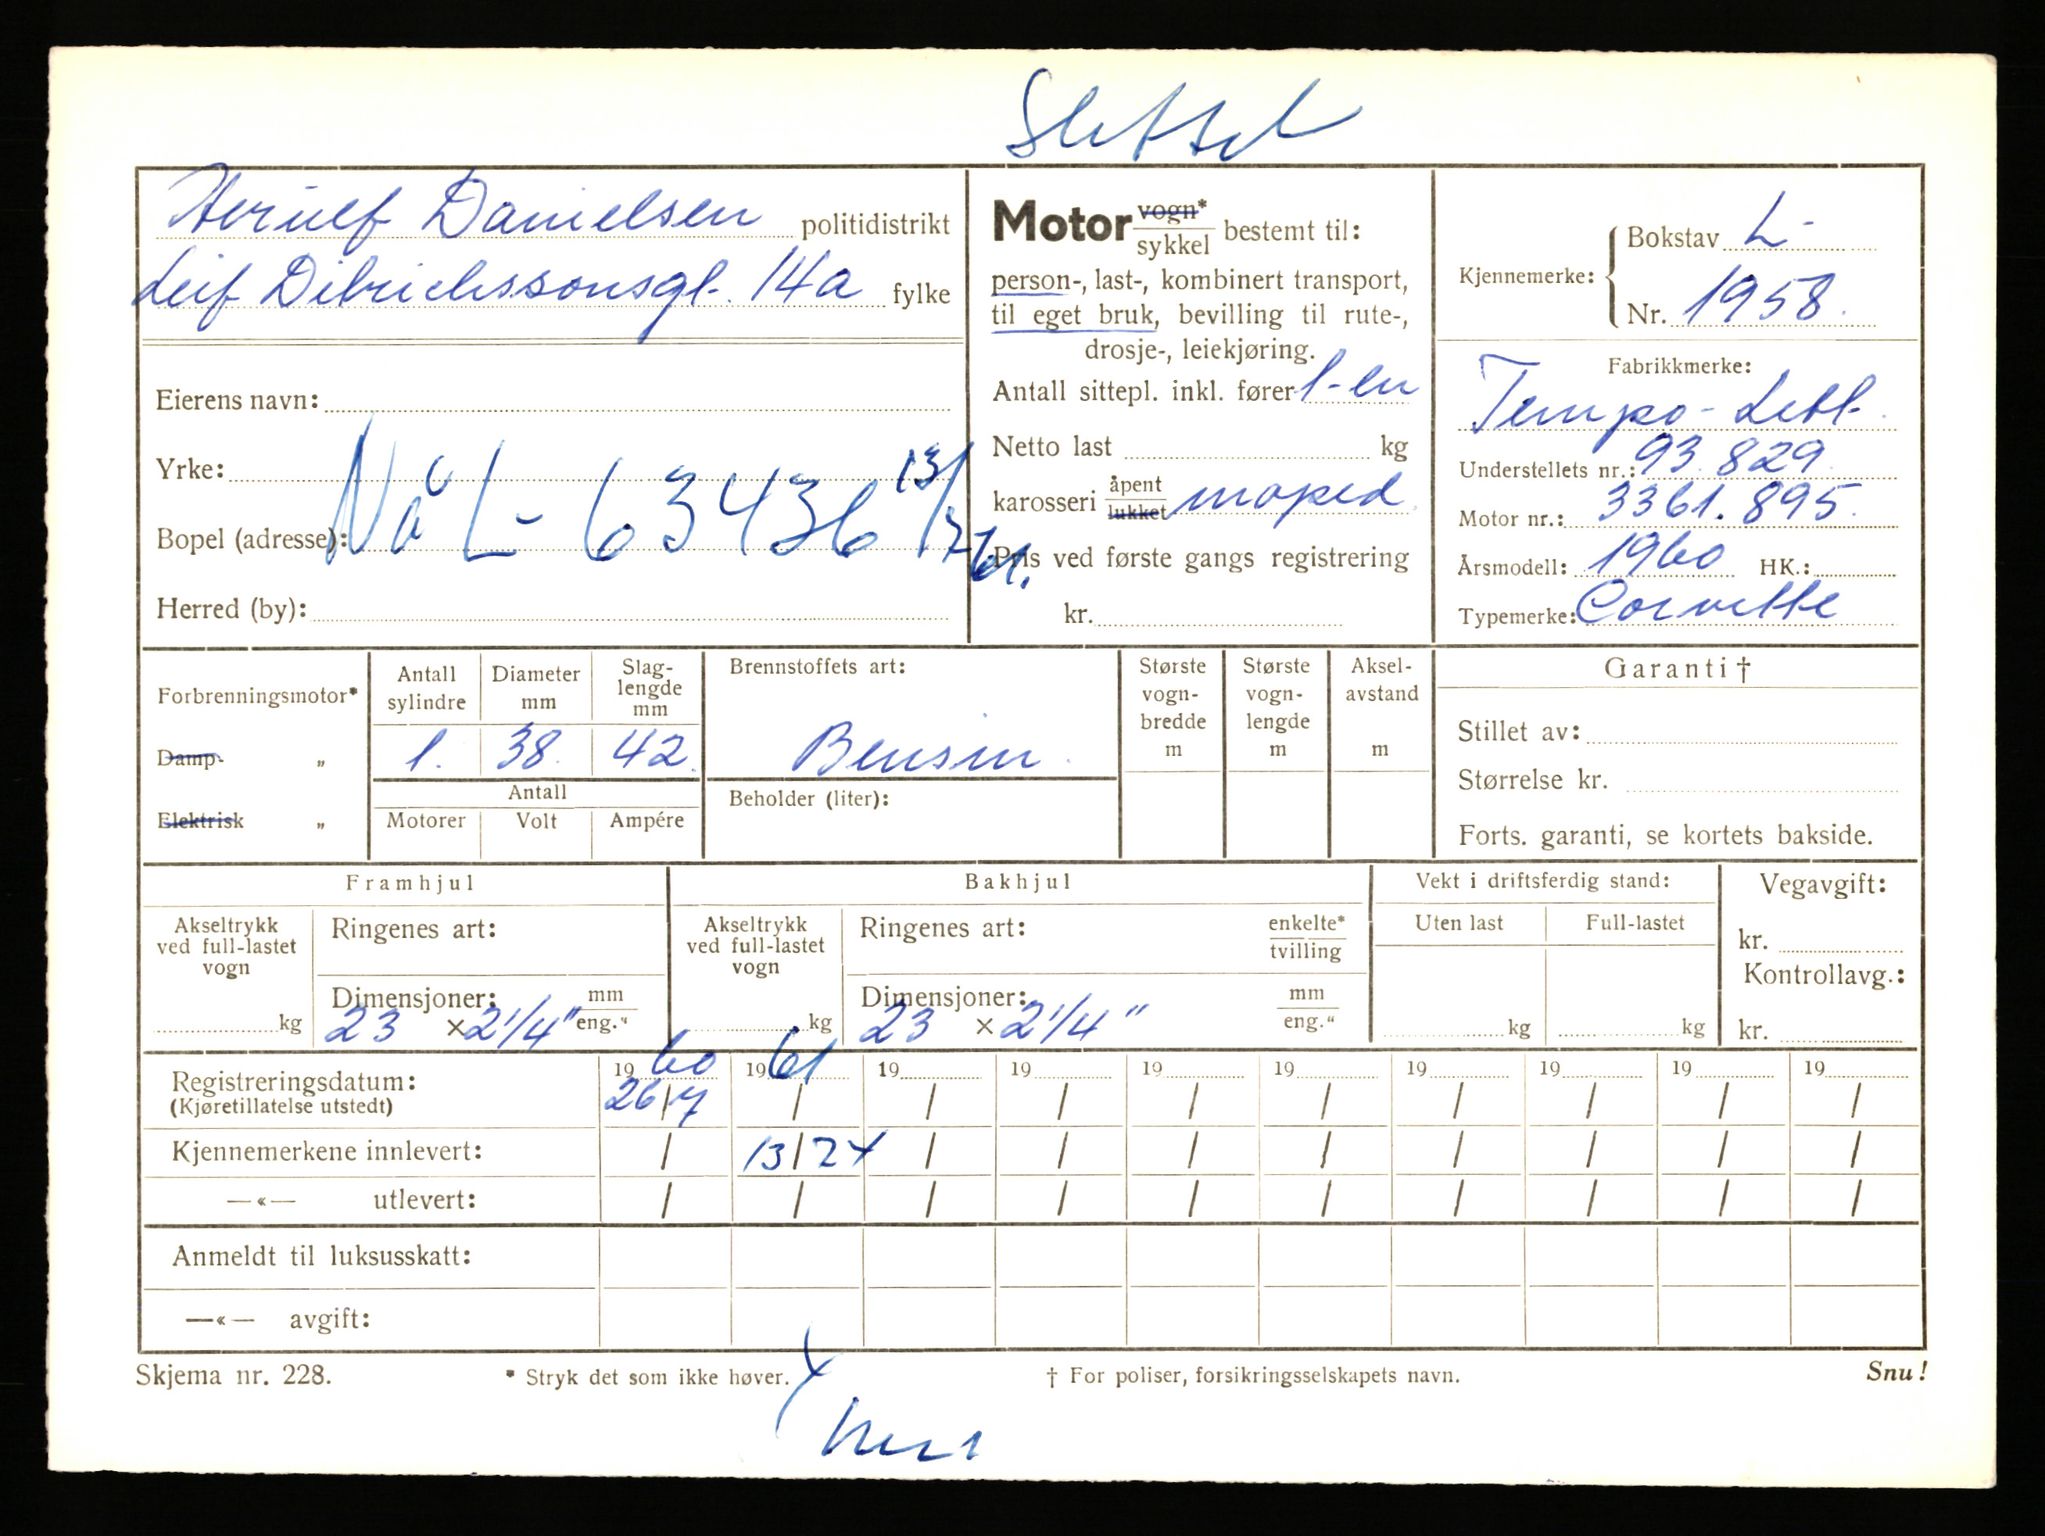 Slettet
Herulf Danielsen politidistrikt
Leif Ditrichssonsgt. 14a fylke
Eierens navn:
Yrke:
Nå L- 63436 13/2 61.
Bopel (adresse):
Herred (by):
Motor vogn* sykkel bestemt til:
person-, last-, kombinert transport,
til eget bruk, bevilling til rute-,
drosje-, leiekjøring.
Antall sittepl. inkl. fører 1-en
Netto last kg
karosseri åpent lukket moped
Pris ved første gangs registrering
kr.
Kjennemerke: Bokstav L-
Nr. 1958.
Fabrikkmerke:
Tempo-Lett.
Understellets nr.: 93.829
Motor nr.: 3361.895.
Årsmodell: 1960 HK.:
Typemerke: Corvette
Forbrenningsmotor*
Damp- „
Elektrisk „
Antall sylindre 1.
Diameter mm 38.
Slag-lengde mm 42.
Antall
Motorer Volt Ampére
Brennstoffets art:
Bensin.
Beholder (liter):
Største vogn-bredde m
Største vogn-lengde m
Aksel-avstand m
Garanti †
Stillet av:
Størrelse kr.
Forts. garanti, se kortets bakside.
Framhjul
Akseltrykk ved full-lastet vogn kg
Ringenes art:
Dimensjoner: mm eng."
23 x 2 1/4"
Bakhjul
Akseltrykk ved full-lastet vogn kg
Ringenes art: enkelte* tvilling
Dimensjoner: mm eng."
23 x 2 1/4"
Vekt i driftsferdig stand:
Uten last Full-lastet
kg kg
Vegavgift:
kr.
Kontrollavg.:
kr.
Registreringsdatum: 19 60 19 61 19 19 19 19 19 19 19 19
(Kjøretillatelse utstedt) 26/7 / / / / / / / / /
Kjennemerkene innlevert: / 13/2 x / / / / / / / /
—«— utlevert: / / / / / / / / / /
Anmeldt til luksusskatt:
—«— avgift:
Skjema nr. 228.
* Stryk det som ikke høver.
† For poliser, forsikringsselskapets navn.
Snu!
x